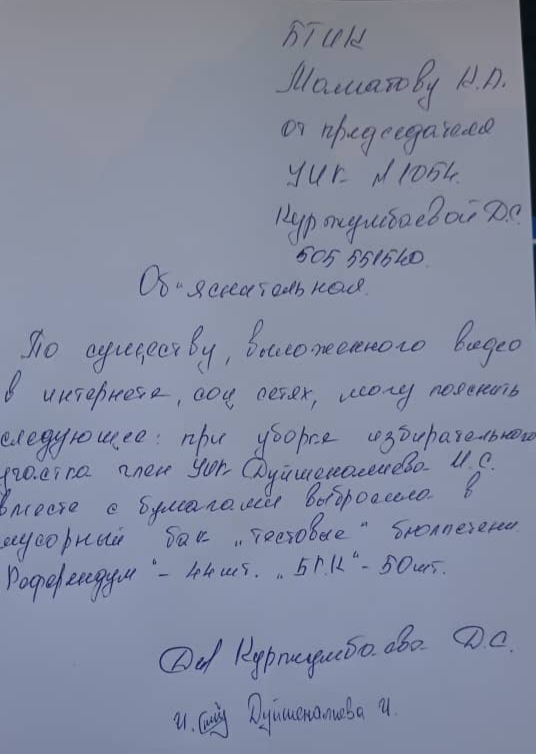 БТИК
Маматову Н.А.
от председателя
УИК №1054.
Куржумбаевой Д.С.
505 551540.
Об"яснительная.
По существу, выложенного видео
в интернете, соц сетях, могу пояснить
следующее: при уборке избирательного
участка член УИК Дуйшеналиева И.С.
вместе с бумагами выбросила в
мусорный бак „тестовые" бюллетени
Референдум" - 44 шт. „БГ.К" - 50 шт.
Куржумбаева Д.С.
И. Дуйшеналиева И.